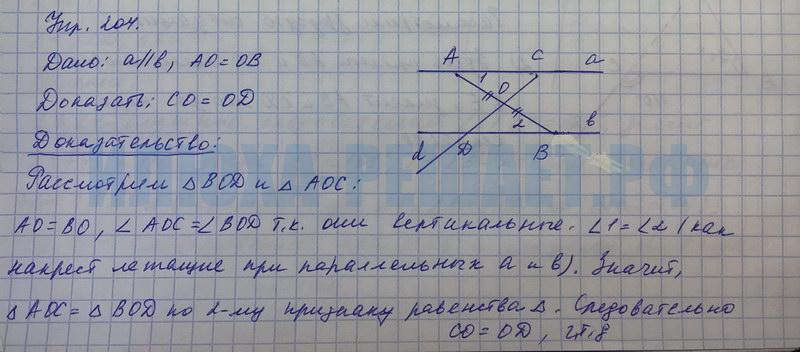 Упр. 204.
Дано: a∥b, AO=OB
Доказать: CO=OD
Доказательство:
Рассмотрим △BOD и △AOC:
AO=BO, ∠AOC=∠BOD т.к. они вертикальные. ∠1=∠2 (как
накрест лежащие при параллельных a и b). Значит,
△AOC=△BOD по 2-му признаку равенства △. Следовательно
CO=OD, чт.д
A C a
1 O
2 b
d D B
РЕШАЕТ.РФ